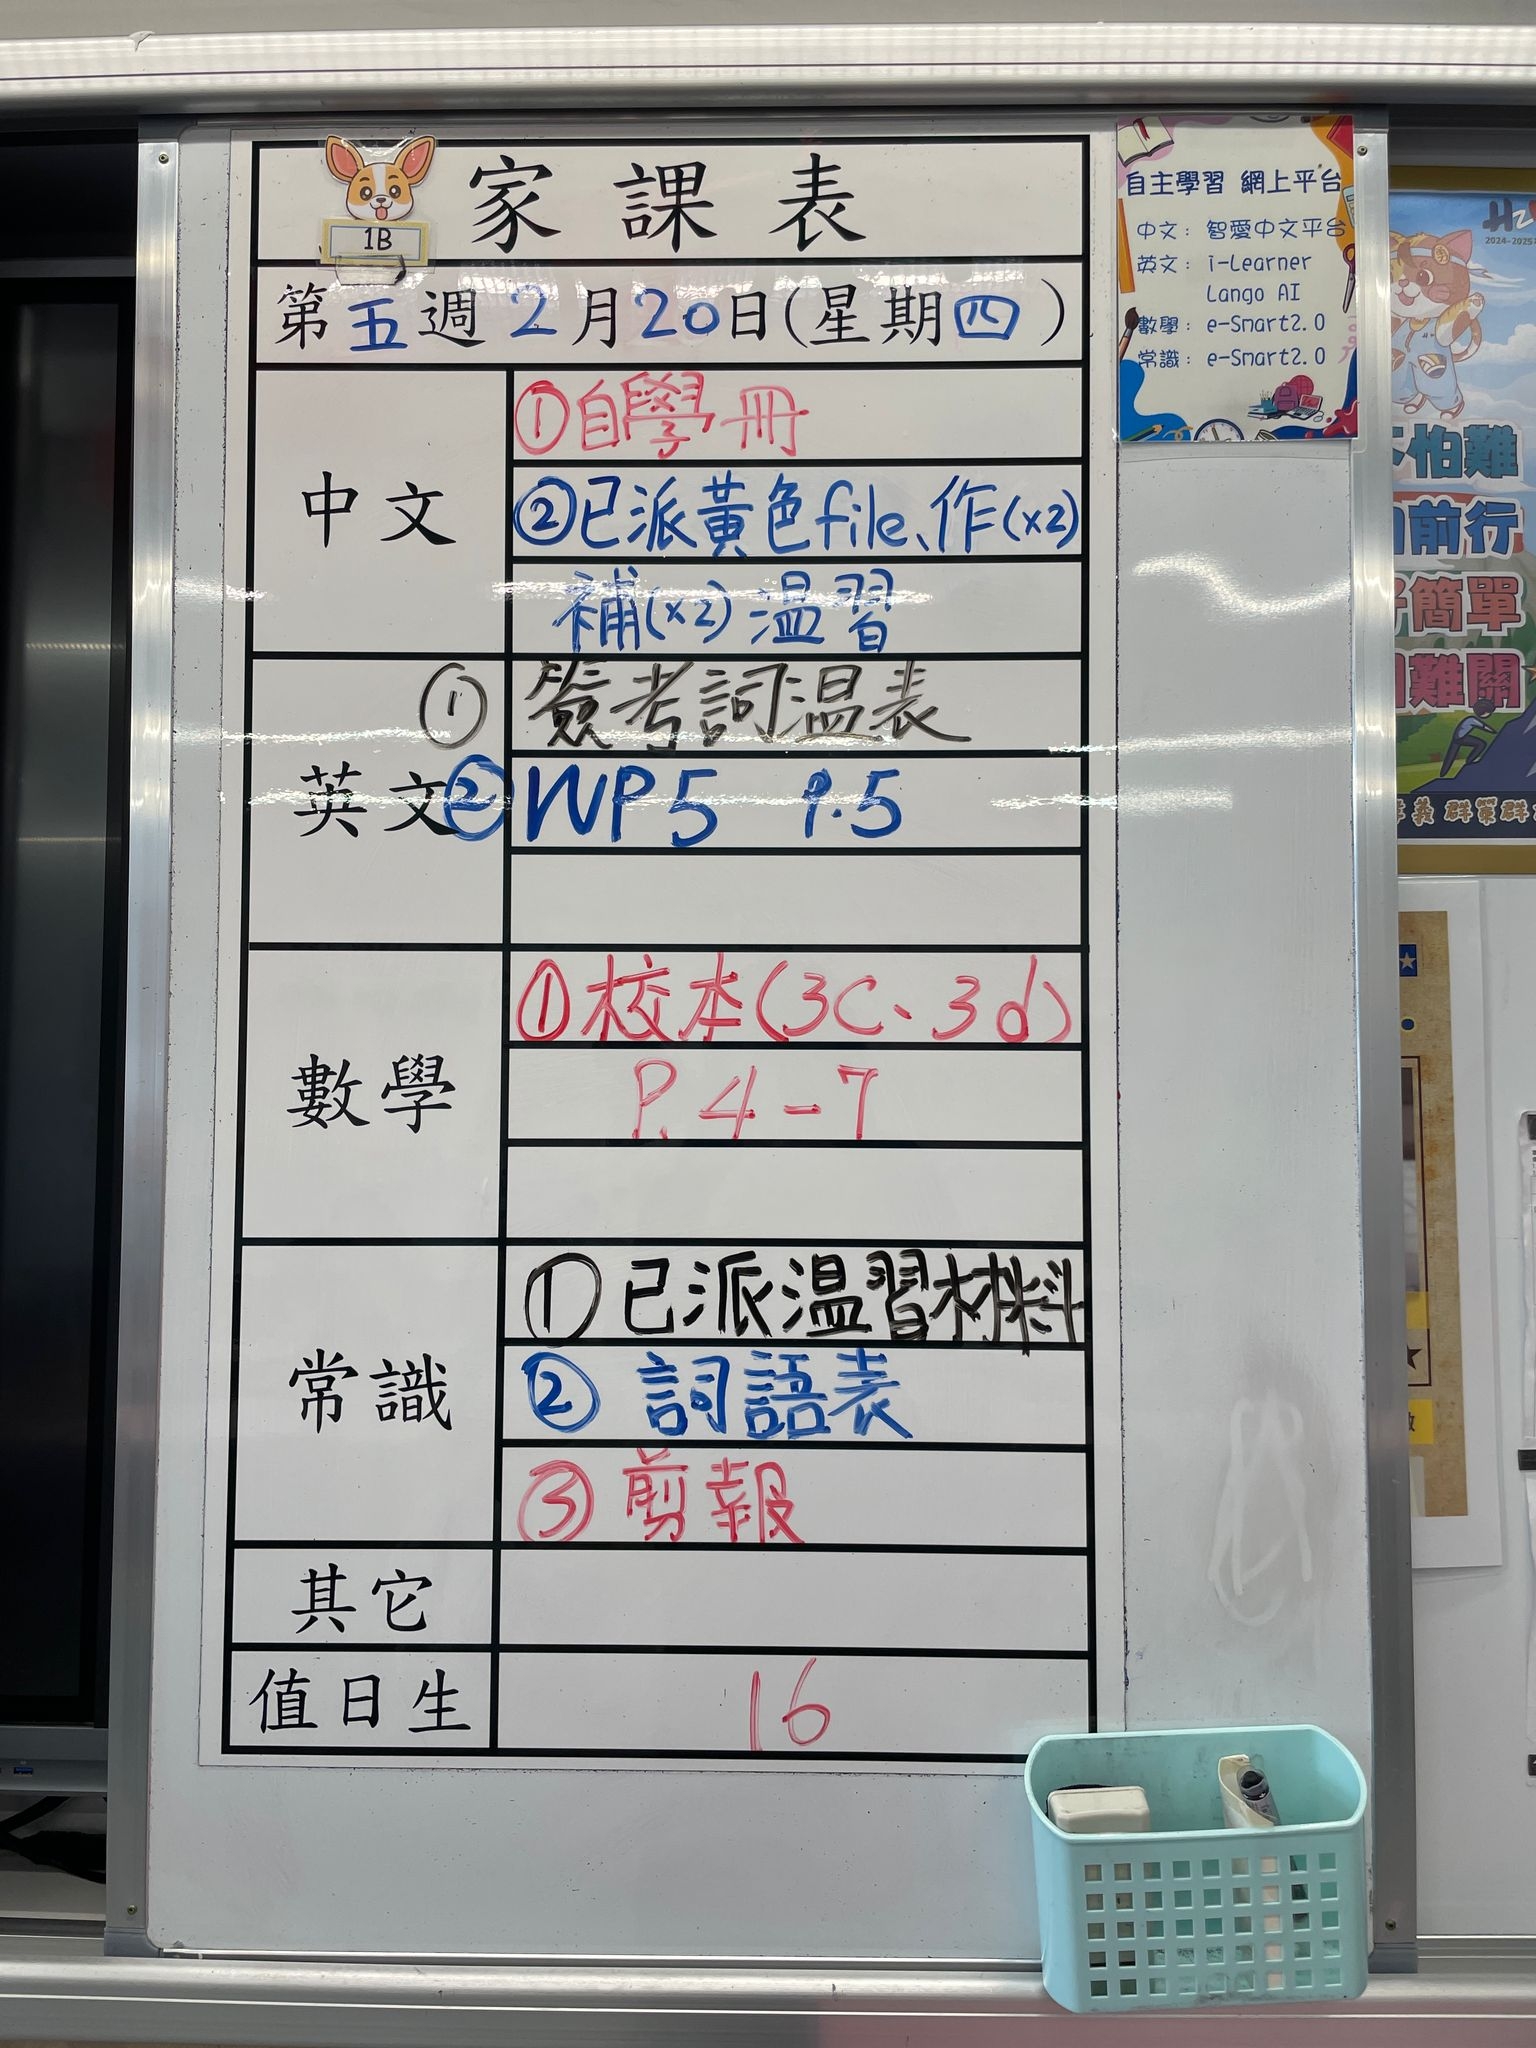 家課表
1B
第五週2月20日(星期四)
中文
①自學冊
②已派黃色file、作(x2)
補(x2)温習
英文
① 簽考詞温表
② WP5 P.5
數學
①校本(3C、3d)
P.4-7
常識
① 已派溫習材料
② 詞語表
③ 剪報
其它
值日生
16
自主學習 網上平台
中文：智愛中文平台
英文：i-Learner
Lango AI
數學：e-Smart2.0
常識：e-Smart2.0
2024-2025
怕難
前行
簡單
難關
義 群策群